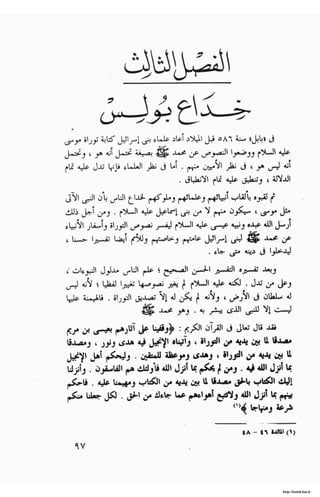 الفصل الثالث
خداع بولس
فى «بابل» سنة ٥٨٦ قبل الميلاد أعاد علماء بنى إسرائيل كتابة توراة موسى
عليه السلام ووضعوا النصوص عن محمد ﷺ بصيغة تحتمل أنه هو ، وتحتمل
أنه ليس هو ، فى نظر الأميين منهم . أما فى نظر العلماء فإنها تدل عليه تمام
الدلالة ، وتنطبق عليه تمام الانطباق .
ثم لقبوه بألقاب أنبيائهم وعلمائهم وملوكهم لخداع الناس بأن النبى الآتى
مثل موسى ، سيكون منهم لا من بنى إسماعيل عليه السلام . ومن أجل ذلك
أرسل الله عبده ونبيه عيسى عليه السلام ليفسر نصوص التوراة وأسفار الأنبياء
عن محمد ﷺ لبنى إسرائيل عامتهم وخاصتهم وللأمم أيضا تفسيرا حسنا ،
ليدخلوا فى دينه متى جاء .
وبعد تفسيره التفسير الحسن الصحيح ؛ علم الناس مدلول النبوءات ،
وعلى من تدل . لكنه عليه السلام . لم يغير نصوصها تغييرا لفظيا ؛ لأنه ليس
له سلطان فى الأرض ، ولأنه لم يكن له إلا تصديق التوراة . فالهيمنة عليها
ليست إلا للنبى الذى يبشر به . وهو محمد ﷺ
فقد قال تعالى فى القرآن الكريم : ﴿وقفينا على آثارهم بعيسى بن مريم
مصدقا لما بين يديه من التوراة ، وآتيناه الإنجيل فيه هدى ونور ، ومصدقا
لما بين يديه من التوراة ، وهدى وموعظة للمتقين . وليحكم أهل الإنجيل
بما أنزل الله فيه . ومن لم يحكم بما أنزل الله فأولئك هم الفاسقون . وأنزلنا
إليك الكتاب بالحق مصدقا لما بين يديه من الكتاب ومهيمنا عليه . فاحكم
بينهم بما أنزل الله ولا تتبع أهواءهم عما جاءك من الحق . لكل جعلنا منكم
شرعة ومنهاجا ﴾(١)
(١) المائدة ٤٦ - ٤٨
٩٧